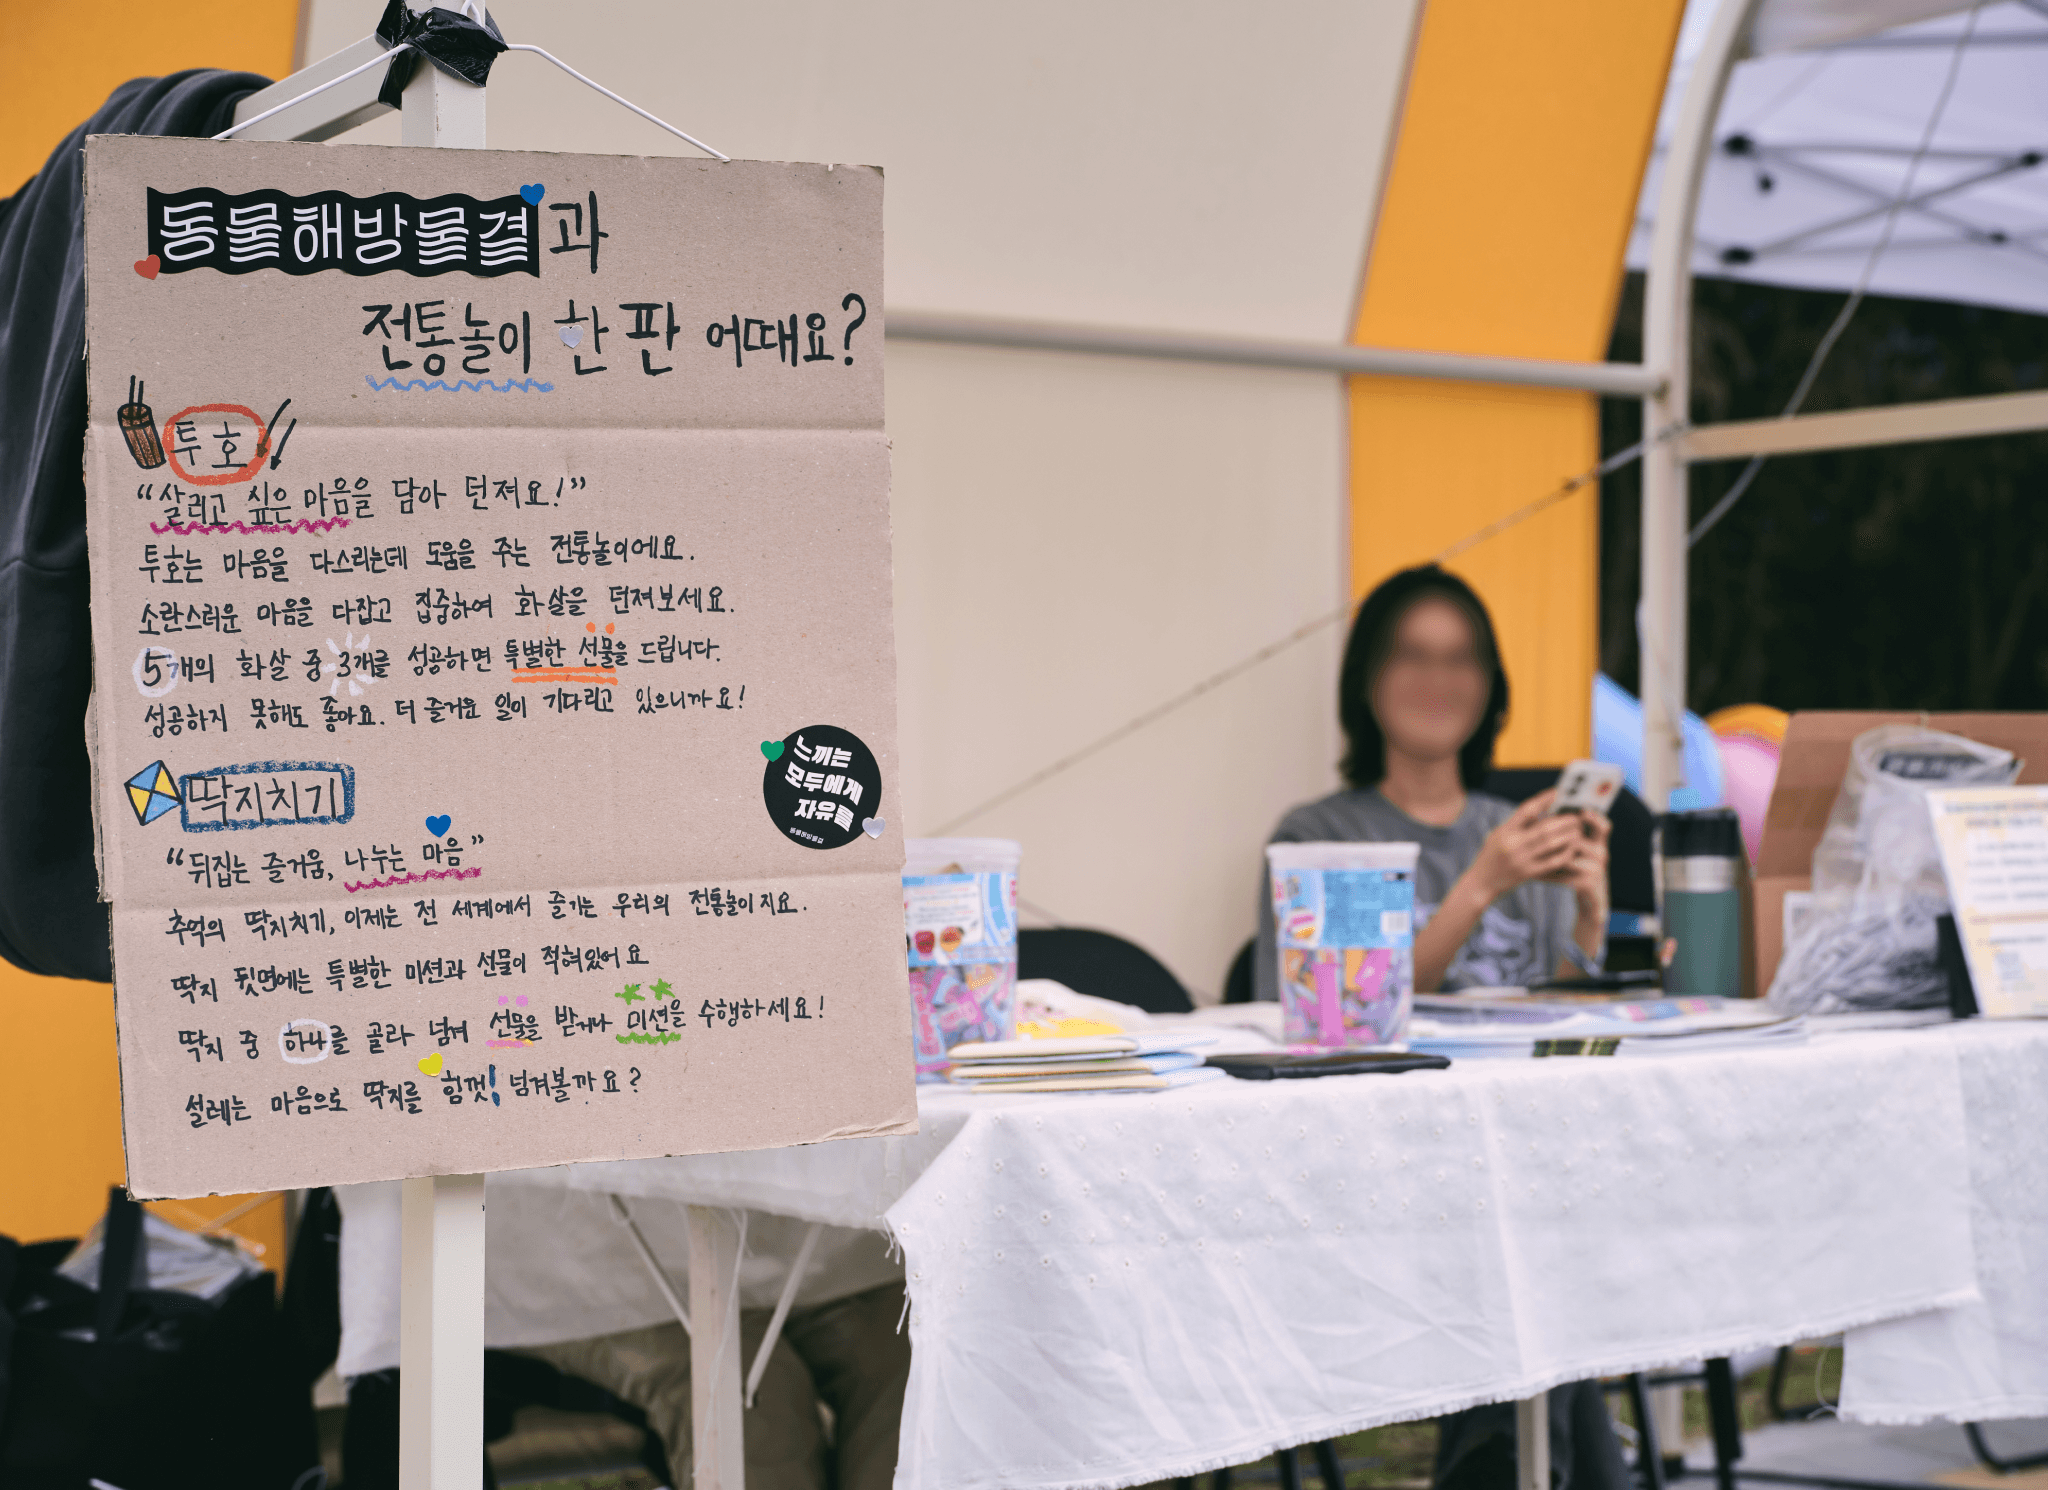 동물해방물결과
전통놀이 한 판 어때요?
투호
“살리고 싶은 마음을 담아 던져요!”
투호는 마음을 다스리는데 도움을 주는 전통놀이에요.
소란스러운 마음을 다잡고 집중하여 화살을 던져보세요.
5개의 화살 중 3개를 성공하면 특별한 선물을 드립니다.
성공하지 못해도 좋아요. 더 즐거운 일이 기다리고 있으니까요!
느끼는
모두에게
자유를
동물해방물결
딱지치기
“뒤집는 즐거움, 나누는 마음”
추억의 딱지치기, 이제는 전 세계에서 즐기는 우리의 전통놀이지요.
딱지 뒷면에는 특별한 미션과 선물이 적혀있어요
딱지 중 하나를 골라 넘겨 선물을 받거나 미션을 수행하세요!
설레는 마음으로 딱지를 힘껏! 넘겨볼까요?